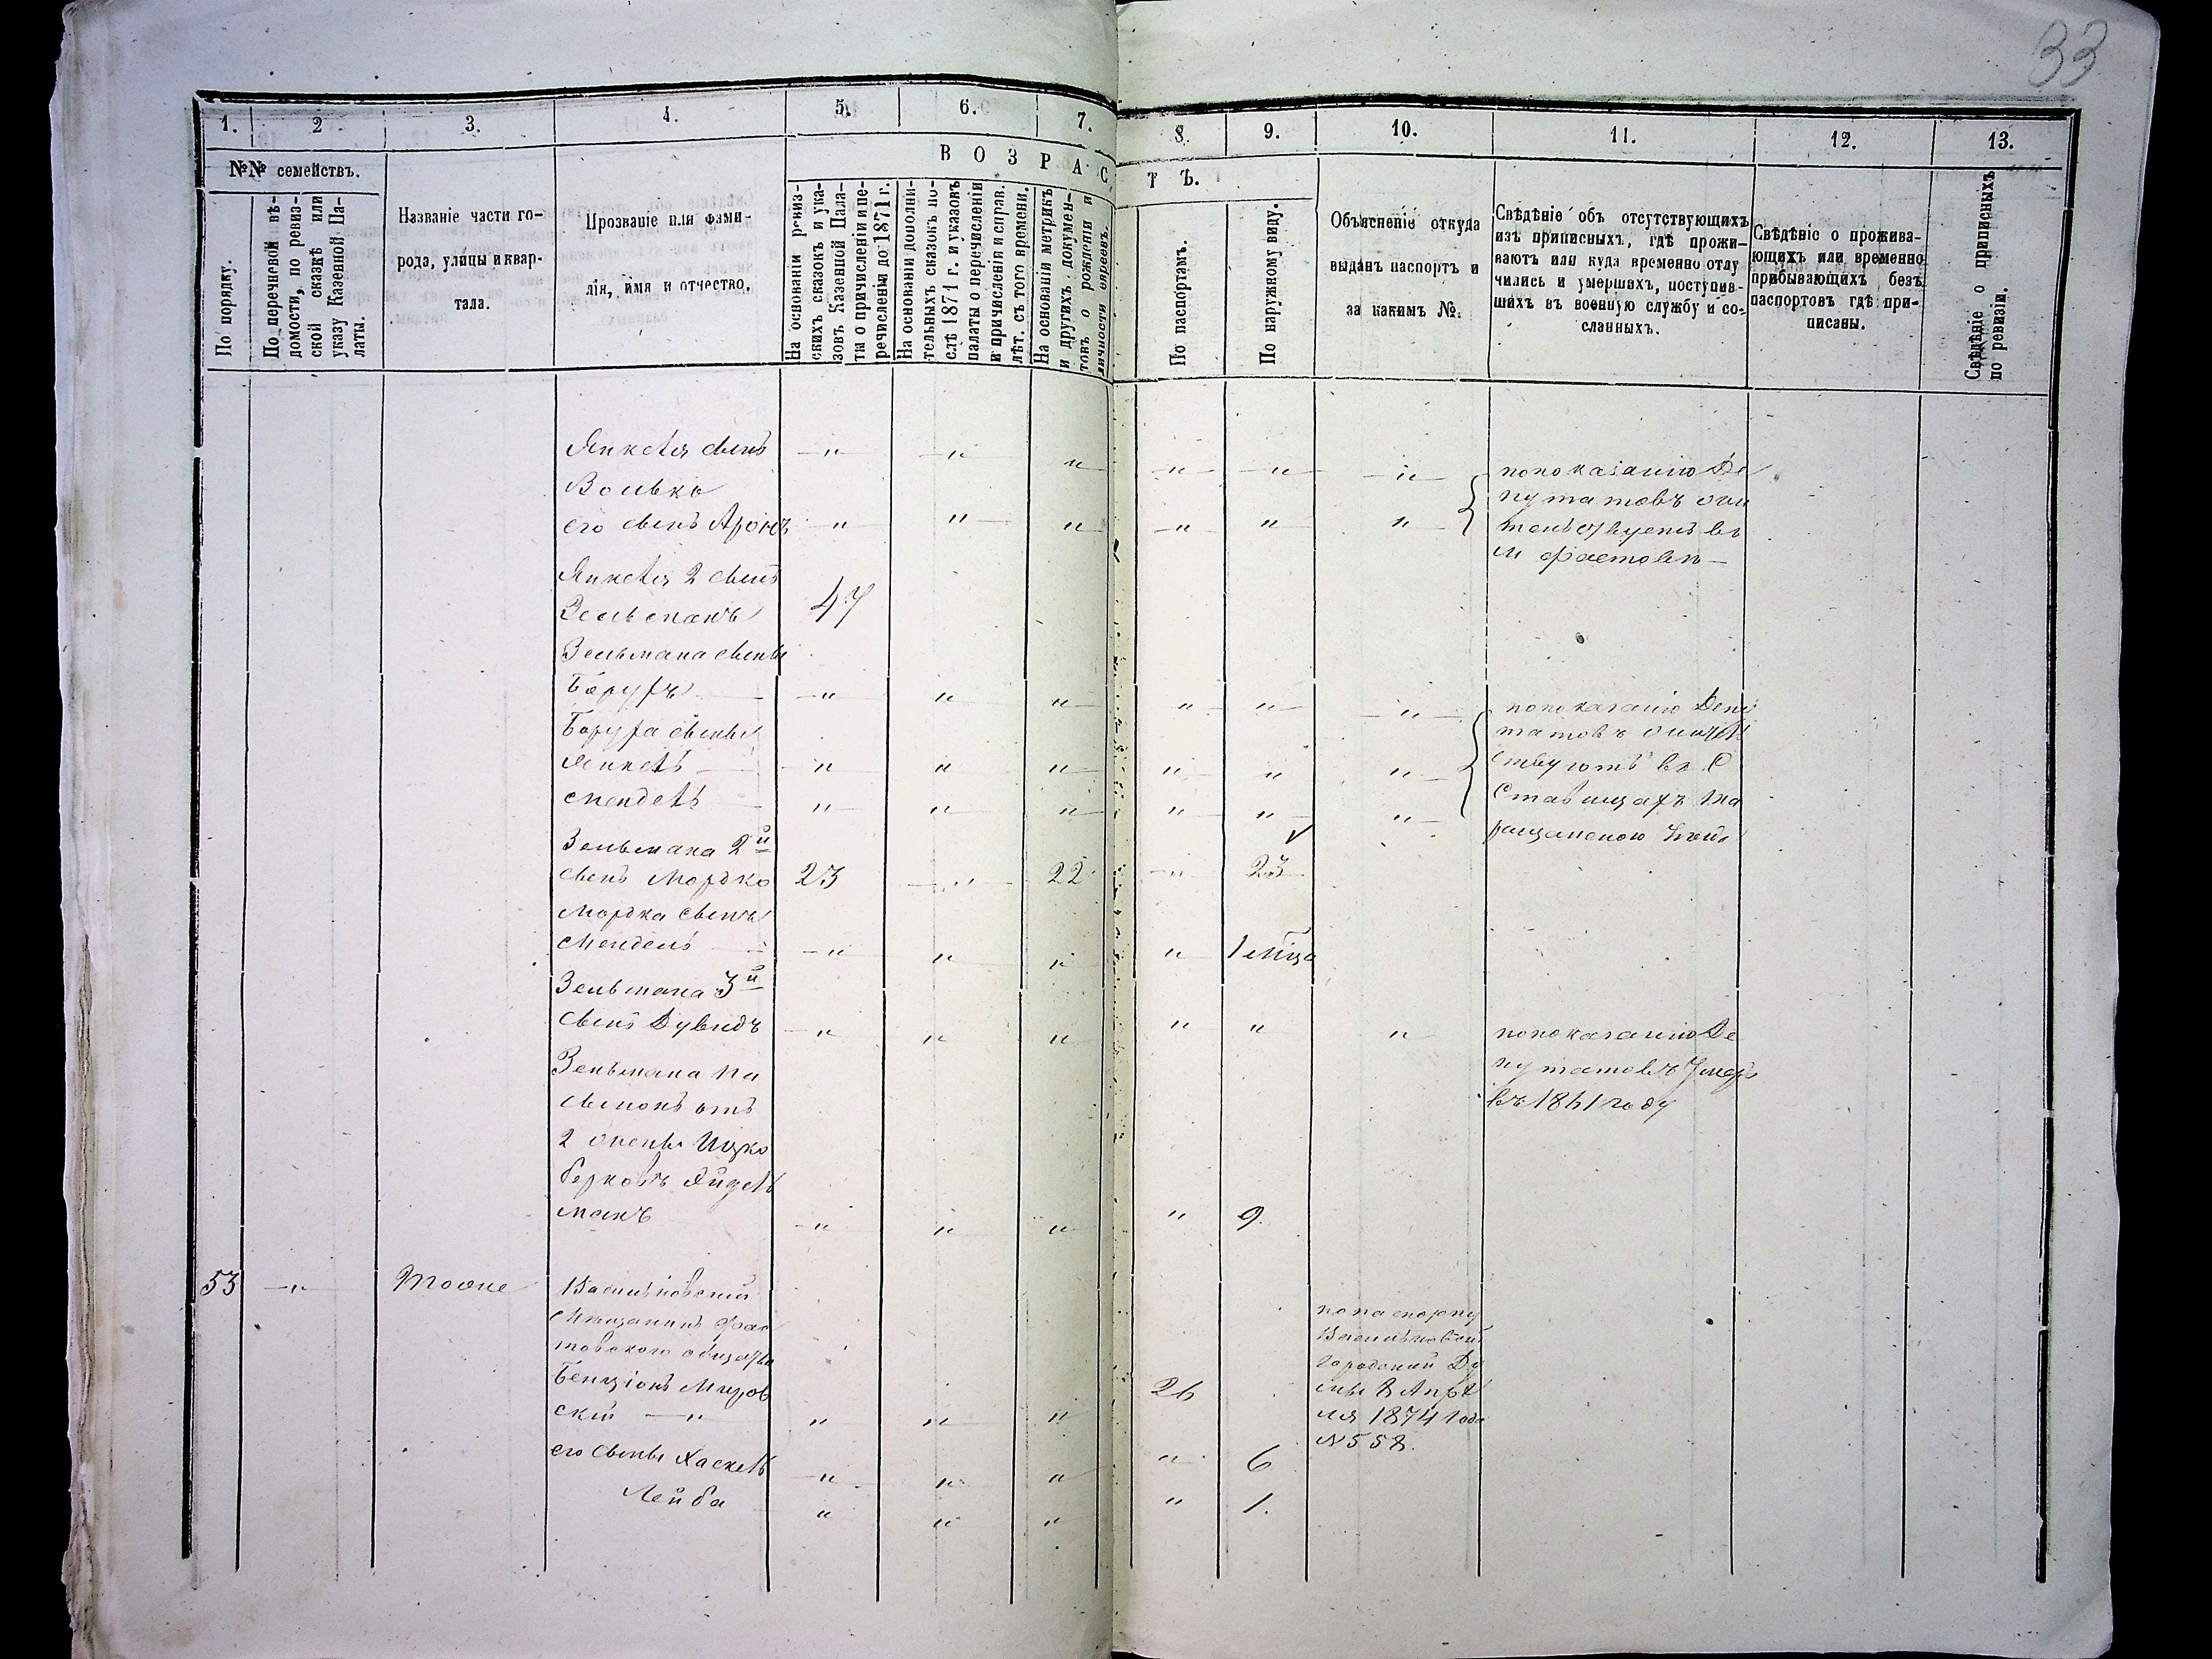 33
1.
2
3.
4.
5.
6.
7.
8.
9.
10.
11.
12.
13.
№№ семействъ.
По порядку.
По перечневой вѣ-
домости, по ревиз-
ской сказкѣ или
указу Казенной Па-
латы.
Названіе части го-
рода, улицы и квар-
тала.
Прозваніе или фами-
лія, имя и отчество.
ВОЗРАС
ТЪ.
На основаніи ревиз-
скихъ сказокъ и ука-
зовъ Казенной Пала-
ты о причисленіи и пе-
речисленіи до 1871 г.
На основаніи дополни-
тельныхъ сказокъ по-
слѣ 1871 г. и указовъ
палаты о перечисленіи
и причисленіи и справ.
лѣт. съ того времени.
На основаніи метрикъ
и другихъ докумен-
товъ о рожденіи и
личности евреевъ.
По паспортамъ.
По наружному виду.
Объясненіе откуда
выданъ паспортъ и
за какимъ №.
Свѣдѣніе объ отсутствующихъ
изъ приписныхъ, гдѣ прожи-
ваютъ или куда временно отлу
чились и умершихъ, поступив-
шихъ въ военную службу и со-
сланныхъ.
Свѣдѣніе о прожива-
ющихъ или временно
прибывающихъ безъ
паспортовъ гдѣ при-
писаны.
Свѣдѣніе о приписныхъ
по ревизіи.
Янкеля сынъ " " " " " "
Волько
его сынъ Аронъ " " " " " "
по показанію Де
путатовъ жи
тельствуетъ въ
м Фастовѣ
Янкеля 2 сынъ
Зельманъ 47
Зельмана сыны
Борухъ " " " " " "
Боруха сыны
Янкель " " " " " "
Мендель " " " " " "
по показанію Депу
татовъ жител
ствуютъ въ
Ставищахъ Та
ращанского
Зельмана 2й
сынъ Мордко 23 " 22 " 23
Мордка сынъ
Мендель " " " " 1 мѣца
Зельмана 3й
сынъ Дувидъ " " " " " "
по показанію Де
путатовъ умеръ
въ 1861 году
Зельмана па
сынокъ отъ
2 жены Ицко
Берковъ
манъ " " " " 9.
53 " Тоже Васильковский
Мѣщанинъ Фас
товского общества
Бенціонъ Миров
ский " " " " 26
по паспорту
Васильковской
городской Ду
мы 8 Апрѣ
ля 1874 года
№ 558.
его сыны Хаскель " " " " 6
Лейба " " " " 1.